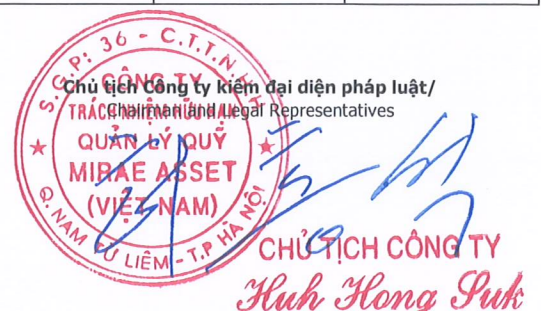 Chủ tịch Công ty kiêm đại diện pháp luật/
Chairman and Legal Representatives
S.G.P: 36 - C.T.T.N.H.H
CÔNG TY
TRÁCH NHIỆM HỮU HẠN
QUẢN LÝ QUỸ
MIRAE ASSET
(VIỆT NAM)
Q. NAM TỪ LIÊM - T.P HÀ NỘI
CHỦ TỊCH CÔNG TY
Huh Hong Suk